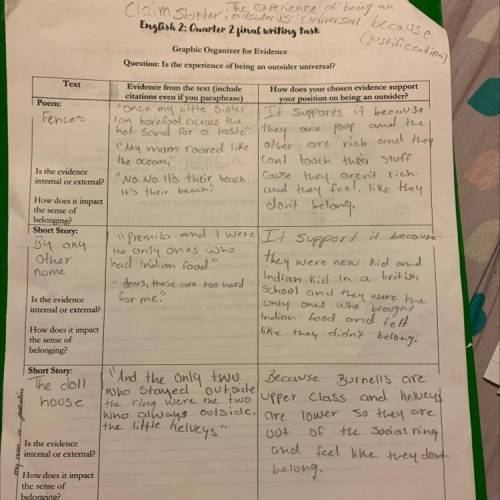 Claim Starter: The experience of being an
outsider is universal because
(justification)
English 2: Quarter 2 final writing task
Graphic Organizer for Evidence
Question: Is the experience of being an outsider universal?
Text
Evidence from the text (include
citations even if you paraphrase)
How does your chosen evidence support
your position on being an outsider?
Poem:
Fences
Is the evidence
internal or external?
How does it impact
the sense of
belonging?
"Once my little sister
ran barefoot across the
hot sand for a taste"
"My mam roared like
the ocean,"
"No. No. It's their beach.
It's their beach."
It supports it because
they are poor and the
other are rich and they
cant touch their stuff
cause they aren't rich
and they feel like they
don't belong.
Short Story:
By any
Other
name
Is the evidence
internal or external?
How does it impact
the sense of
belonging?
"Premila and I were
the only ones who
had Indian food"
"dears, those are too hard
for me."
It support it because
they were new kid and
Indian kid in a british
school and they were the
only ones who brought
Indian food and felt
like they didn't belong.
Short Story:
The doll
house
Is the evidence
internal or external?
How does it impact
the sense of
belonging?
"And the only two
who stayed outside
the ring were the two
who always outside,
the little kelveys"
Because Burnells are
upper class and kelveys
are lower so they are
out of the social ring
and feel like they dont
belong.